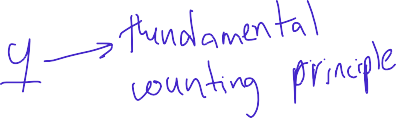 4 → fundamental
counting principle